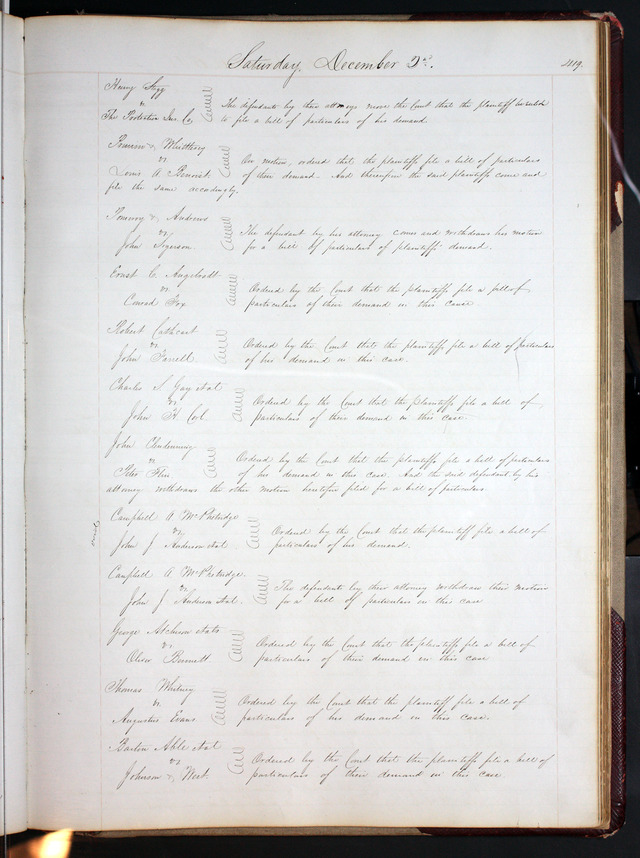 Saturday, December 3d. 419.
Henry
vs
The Protection Ins. Co.
The defendants by their attorneys move the Court that the plaintiff be ruled
to file a bill of particulars of his demand
vs
Louis A. Benoist
On motion, ordered that the plaintiffs file a bill of particulars
of their demand. And thereupon the said plaintiffs come and
file the same accordingly.
Pomeroy & Andrews
vs
John
The defendant by his attorney comes and withdraws his motion
for a bill of particulars of plaintiffs demand.
Ernst C. Angelrodt
vs
Conrad Fox
Ordered by the Court that the plaintiff file a bill of
particulars of their demand in this case.
Robert Cathcart
vs
John Farrell
Ordered by the Court that the plaintiff file a bill of particulars
of his demand in this case.
Charles S. Gay et al
vs
John H Col.
Ordered by the Court that the plaintiffs file a bill of
particulars of their demand in this case.
John Clendenning
vs
Peter Flin
Ordered by the Court that the plaintiff file a bill of particulars
of his demand in this case. And the said defendant by his
attorney withdraws the other motion heretofore filed for a bill of particulars.
Campbell A McPhetridge
vs
John J. Anderson et al
Ordered by the Court that the plaintiff file a bill of
particulars of his demand.
Campbell A McPhetridge
vs
John J Anderson et al.
The defendants by their attorney withdraw their motion
for a bill of particulars in this case
George Atcheson et als
vs
Oliver Bennett
Ordered by the Court that the plaintiffs file a bill of
particulars of their demand in this case
Thomas Whitney
vs
Augustus Evans
Ordered by the Court that the plaintiff file a bill of
particulars of his demand in this case.
Barton Able et al
vs
Johnson & West.
Ordered by the Court that the plaintiffs file a bill of
particulars of their demand in this case